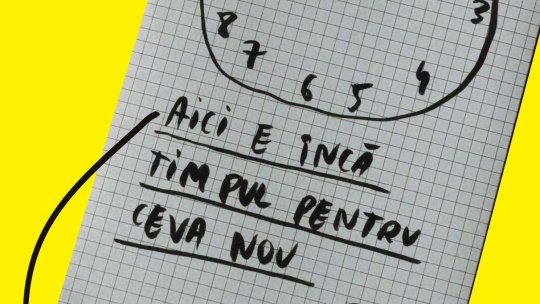 3
8
7
6 5 4
AICI E ÎNCĂ
TIMPUL PENTRU
CEVA NOU